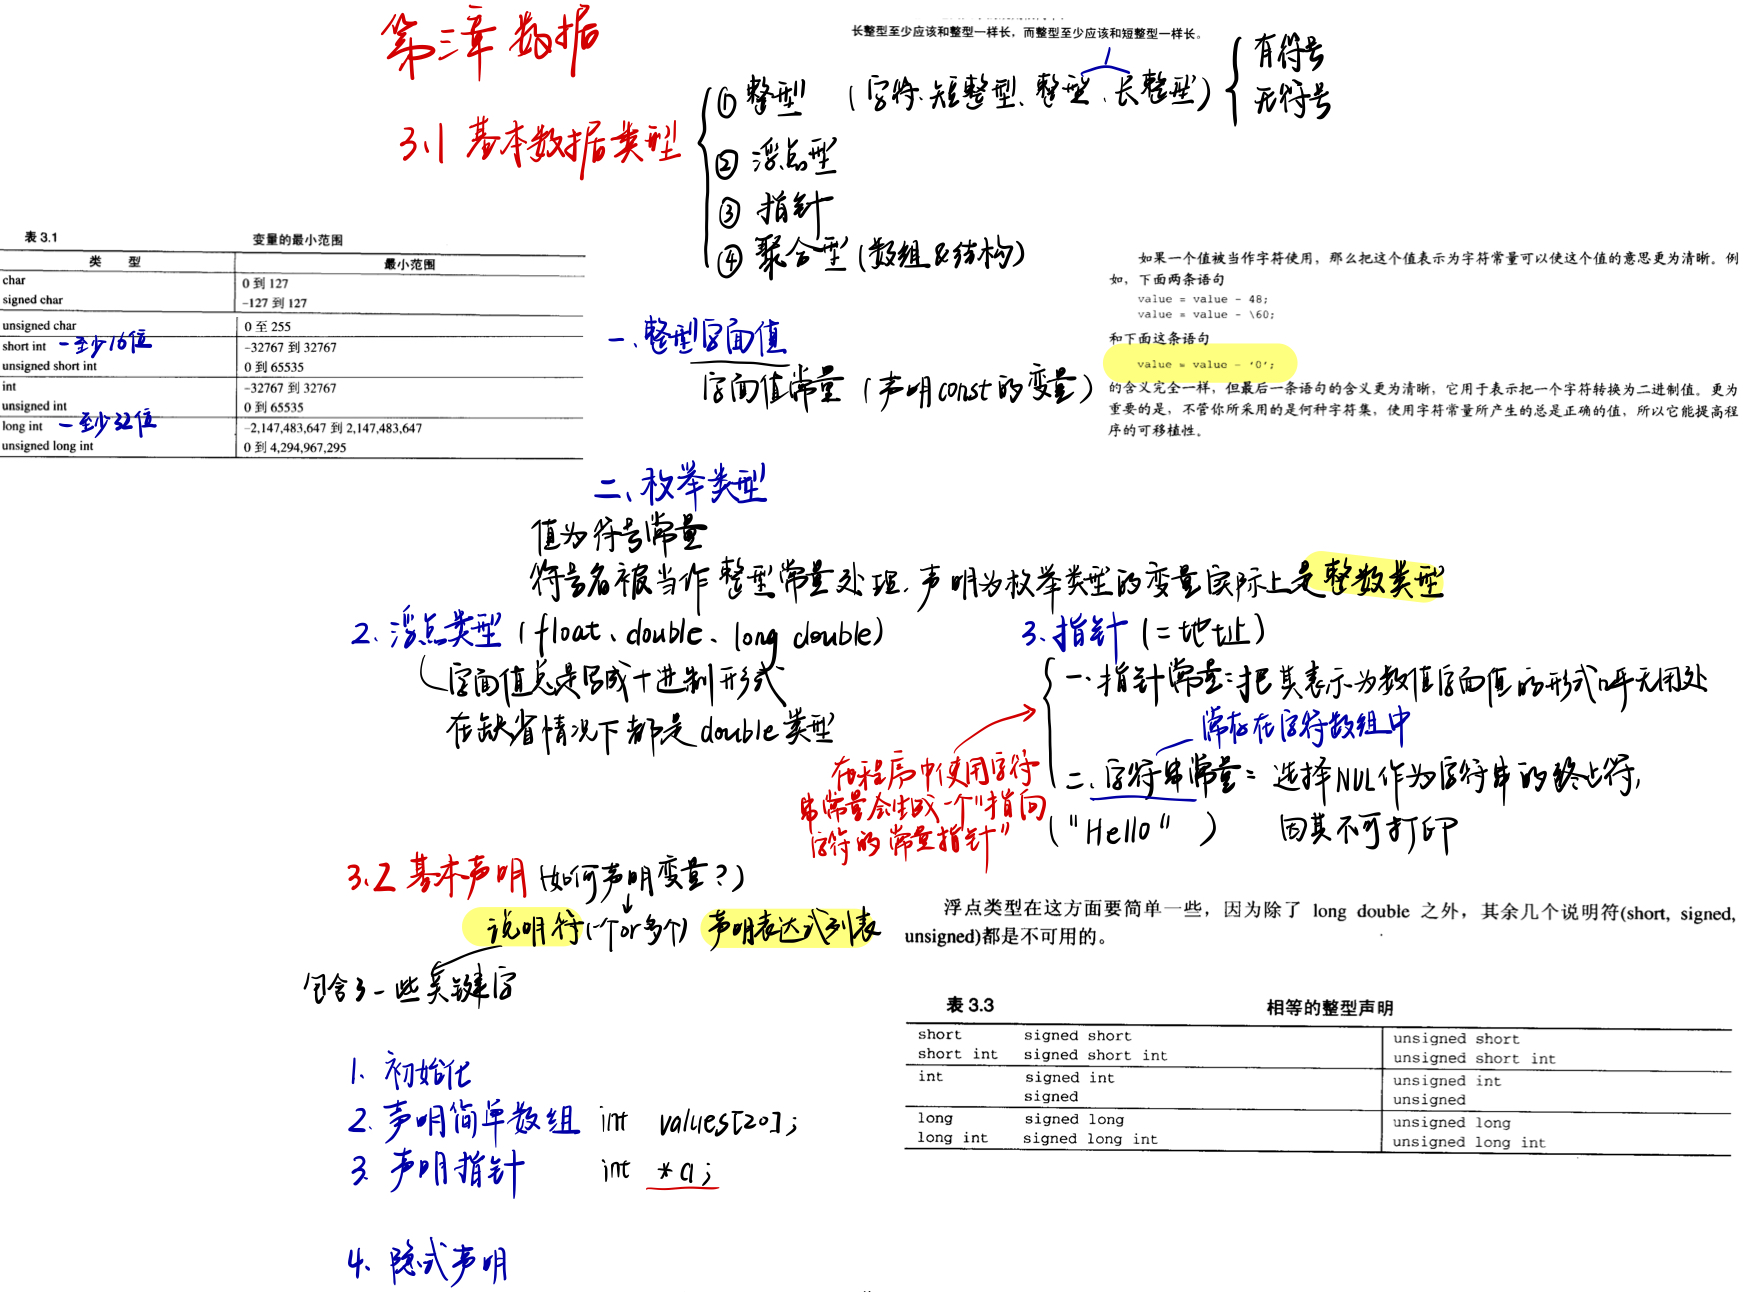 第三章 数据
长整型至少应该和整型一样长，而整型至少应该和短整型一样长。
3.1 基本数据类型
① 整型 (字符、短整型、整型、长整型)
有符号
无符号
② 浮点型
③ 指针
④ 聚合型 (数组&结构)
表 3.1 变量的最小范围
类 型 最小范围
char 0 到 127
signed char -127 到 127
unsigned char 0 至 255
short int -至少16位 -32767 到 32767
unsigned short int 0 到 65535
int -32767 到 32767
unsigned int 0 到 65535
long int -至少32位 -2,147,483,647 到 2,147,483,647
unsigned long int 0 到 4,294,967,295
一、整型字面值
字面值常量 (声明const的变量)
如果一个值被当作字符使用，那么把这个值表示为字符常量可以使这个值的意思更为清晰。例
如，下面两条语句
value = value - 48;
value = value - \60;
和下面这条语句
value = value - '0';
的含义完全一样，但最后一条语句的含义更为清晰，它用于表示把一个字符转换为二进制值。更为
重要的是，不管你所采用的是何种字符集，使用字符常量所产生的总是正确的值，所以它能提高程
序的可移植性。
二、枚举类型
值为符号常量
符号名被当作整型常量处理，声明为枚举类型的变量实际上是整数类型
2. 浮点类型 (float、double、long double)
字面值总是写成十进制形式
在缺省情况下都是double类型
3. 指针 (=地址)
一、指针常量：把其表示为数值字面值的形式几乎无用处
常存在字符数组中
二、字符串常量：选择NUL作为字符串的终止符，
("Hello") 因其不可打印
在程序中使用字符
串常量会生成一个"指向
字符的常量指针"
3.2 基本声明 (如何声明变量？)
说明符(一个or多个) 声明表达式列表
包含了一些关键字
浮点类型在这方面要简单一些，因为除了 long double 之外，其余几个说明符(short, signed,
unsigned)都是不可用的。
表 3.3 相等的整型声明
short signed short unsigned short
short int signed short int unsigned short int
int signed int unsigned int
signed unsigned
long signed long unsigned long
long int signed long int unsigned long int
1. 初始化
2. 声明简单数组 int values[20];
3. 声明指针 int *a;
4. 隐式声明